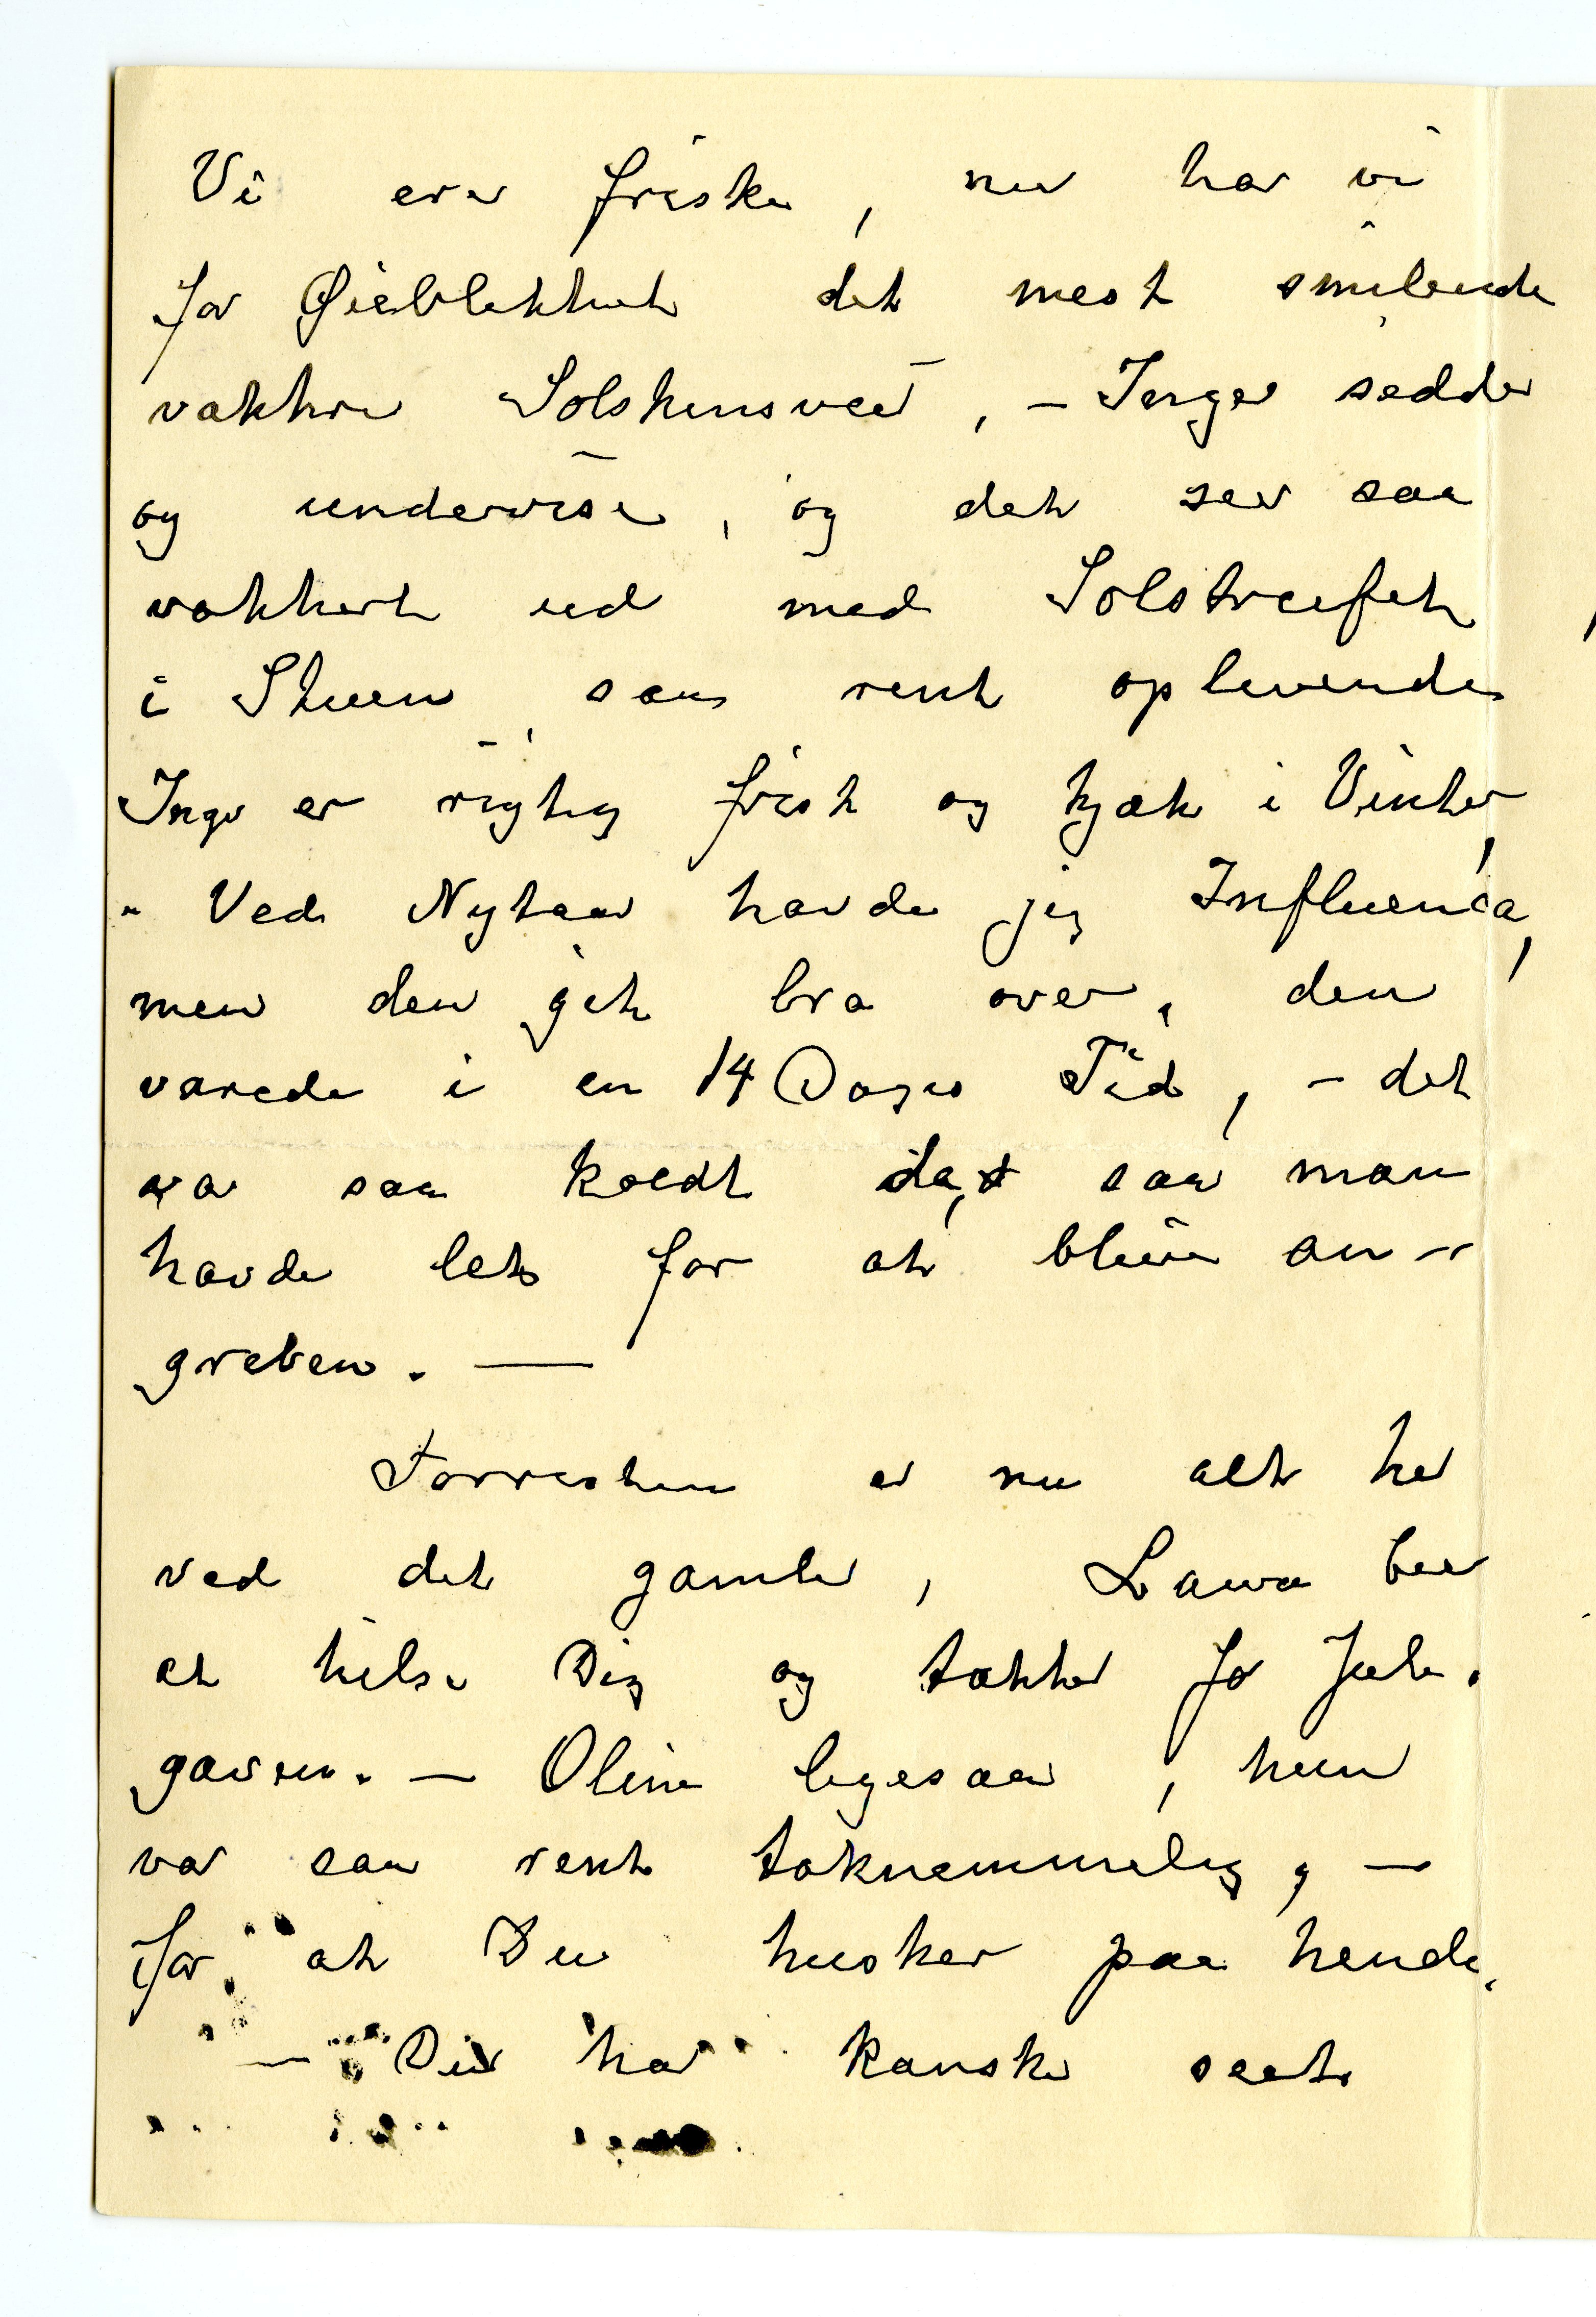 Vi ere friske, nu har vi
for Øieblikket det mest smilende
vakkre Solskinsveir, – Inger sidder
og underviser, og det ser saa
vakkert ud med Solstreifet
i Stuen, saa rent oplivende
Inger er rigtig frisk og kjæk i Vinter,
– Ved Nytaar havde jeg Influenca,
men den gik bra over, den
varede i en 14 Dages Tid, – det
var saa koldt da, saa man
havde let for at blive an-
greben. —
Forresten er nu alt her
ved det gamle, Laura beer
at hilse Dig og takker for Jule-
gaven. — Oline ligesaa, hun
var saa rent taknemmelig, —
for at Du husker paa hende.
— Du har kanske seet